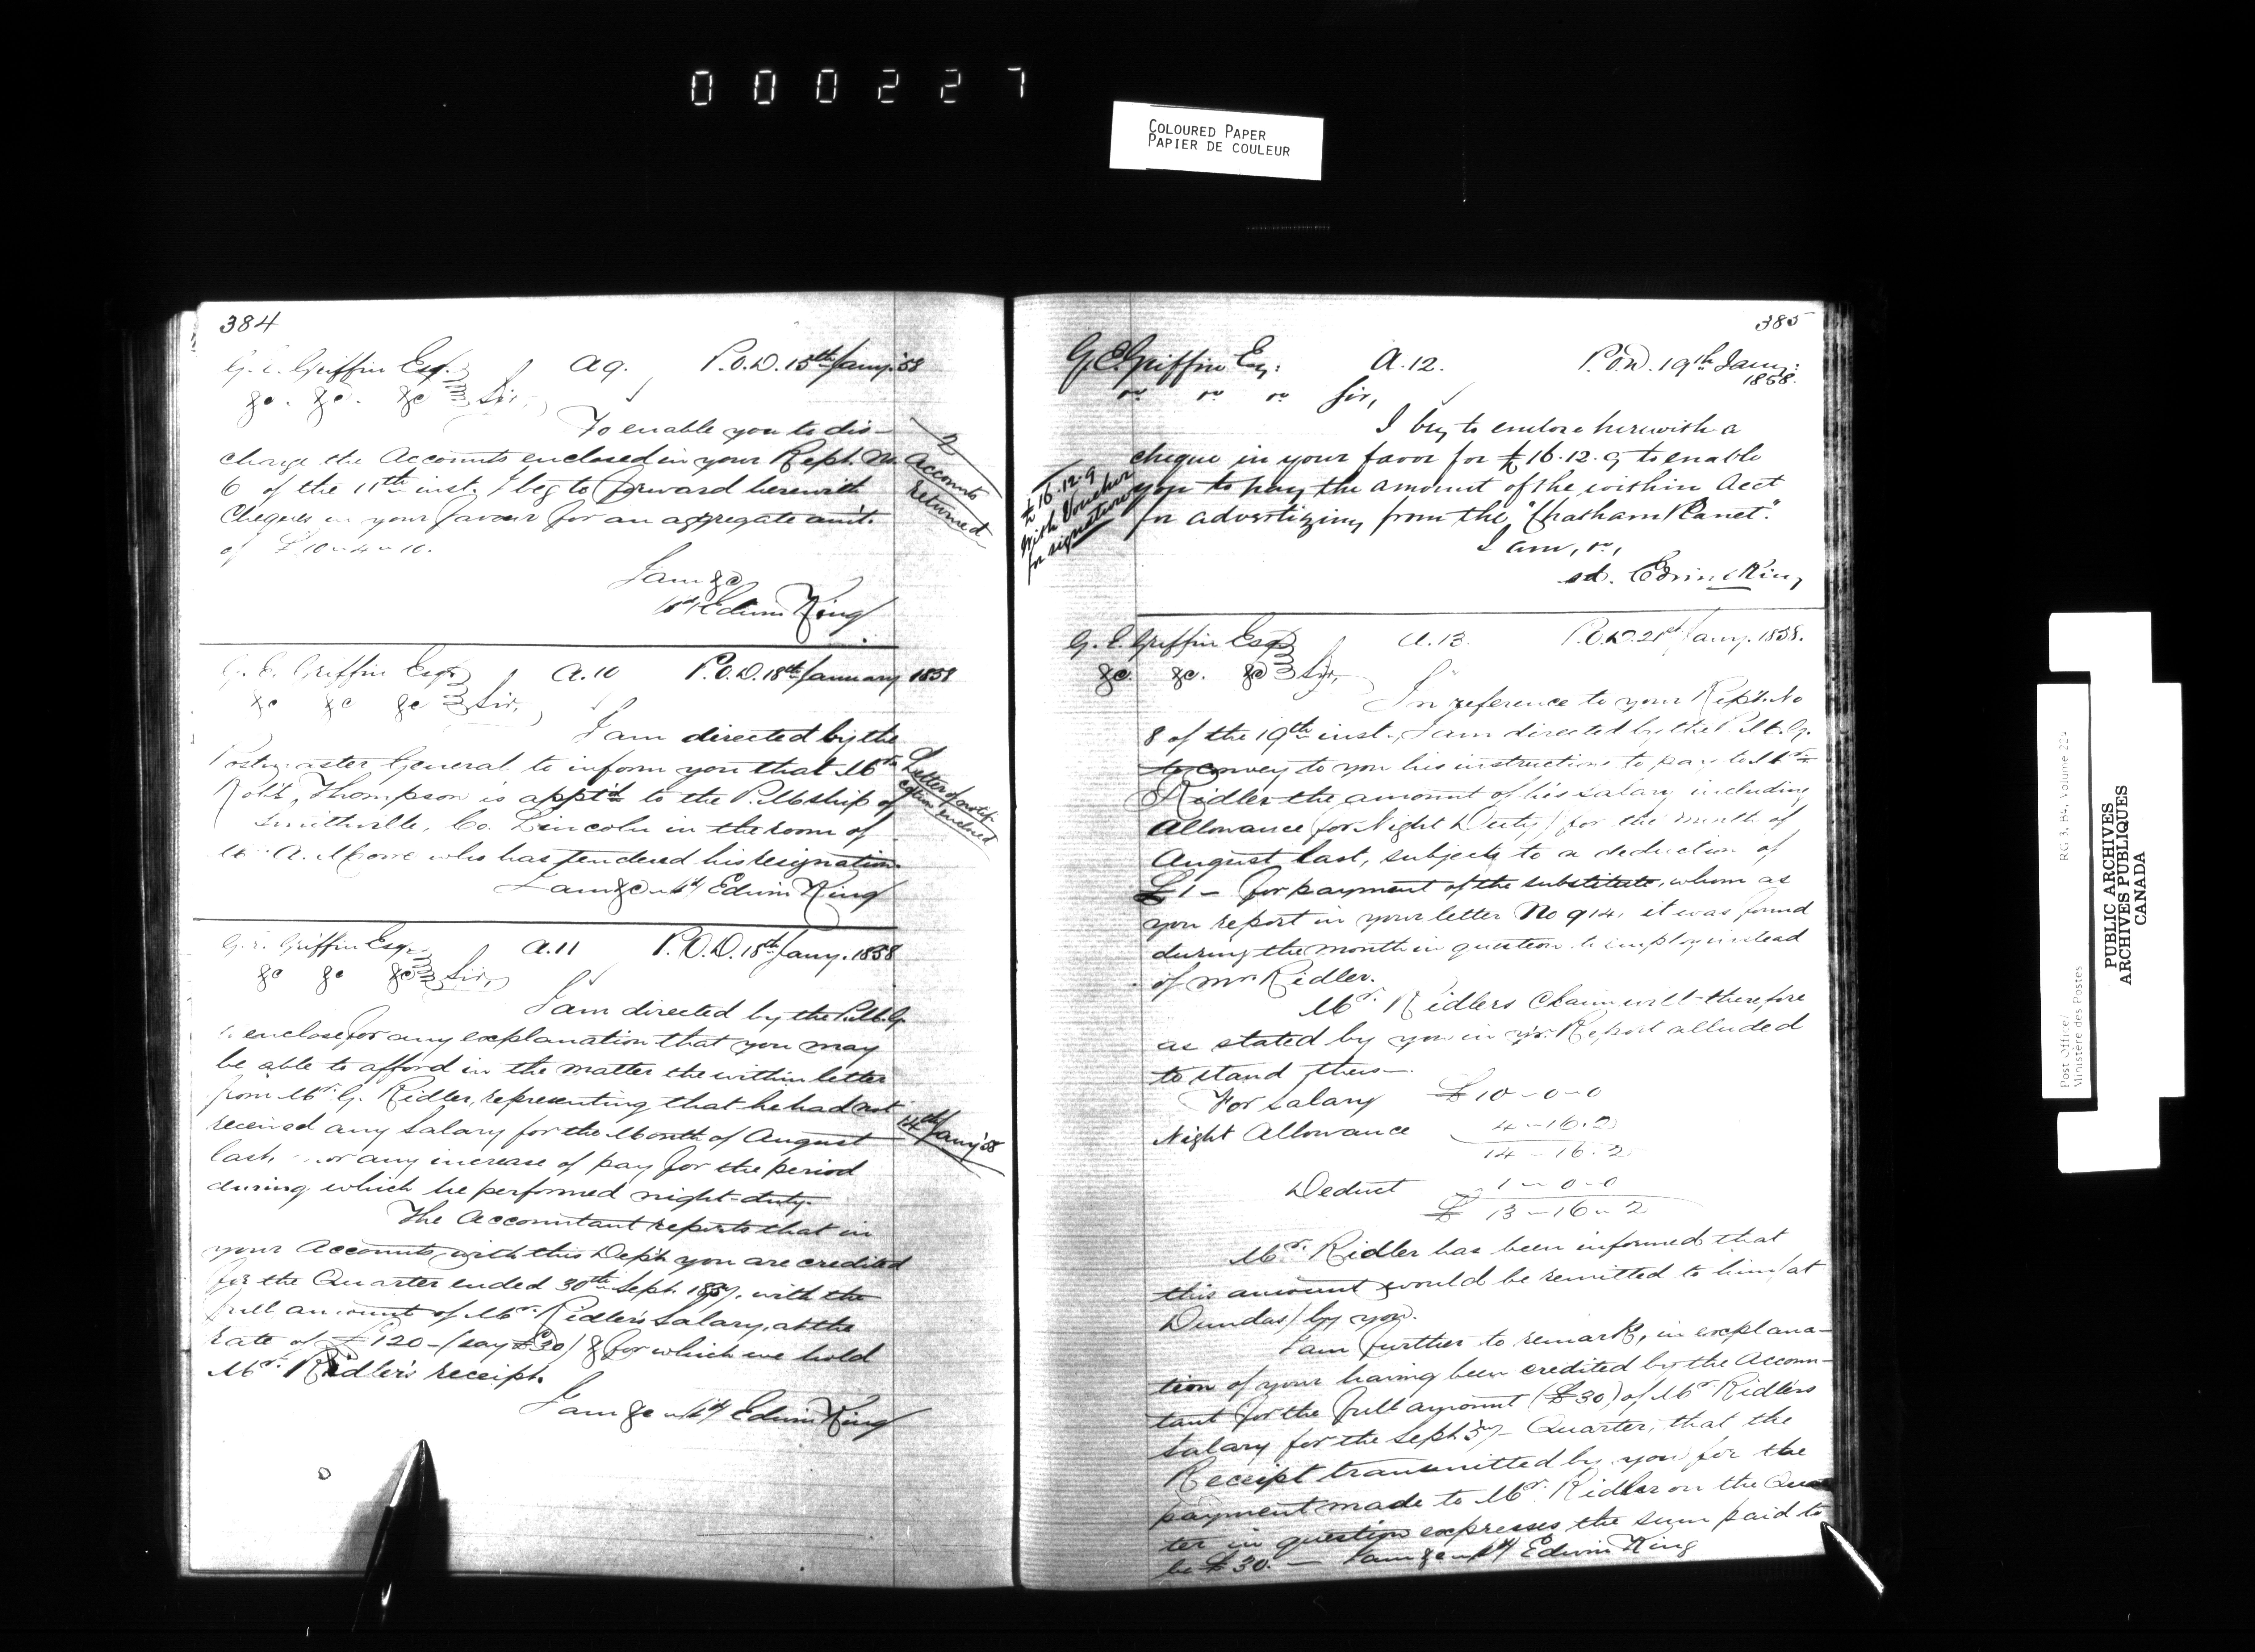 000227
COLOURED PAPER
PAPIER DE COULEUR
384
G. E. Griffin Esq. A 9. P.O.D. 15th Jany. '58
&c. &c. &c Sir,
To enable you to dis-
charge the Accounts enclosed in your Rept. No.
6 of the 11th inst. I beg to forward herewith
Cheques in your favour for an aggregate amt.
of £10-4-10.
2
Accounts
Returned
I am &c
sd/ Edwin King
G. E. Griffin Esq. A.10 P.O.D. 18th January 1858
&c &c &c Sir,
I am directed by the
Postmaster General to inform you that Mr
Robt. Thompson is appt'd to the P.Mship of
Smithville, Co. Lincoln in the room of
Mr. A. who has tendered his resignation.
Letter of notifi
cation enclosed
I am &c sd/ Edwin King
G. E. Griffin Esq. A.11 P.O.D. 18th Jany. 1858
&c &c &c Sir,
I am directed by the P.M.G.
to enclose for any explanation that you may
be able to afford in the matter the within letter
from Mr. G. Ridler, representing that he had not
received any Salary for the Month of August
last, nor any increase of pay for the period
during which he performed night-duty.
14th Jany '58
The Accountant reports that in
your Accounts with this Dept. you are credited
for the Quarter ended 30th Sept. 1857. with the
full amount of Mr. Ridler's Salary, at the
rate of £120-(say £30) & for which we hold
Mr. Ridler's receipt.
I am &c sd/ Edwin King
385
G.E. Griffin Esq: A.12. P.O.D. 19th Jany:
1858.
Sir,
I beg to enclose herewith a
cheque in your favor for £16.12.9 to enable
you to pay the amount of the within Acct
for advertizing from the "Chatham Planet."
£16.12.9
With Voucher
for signature
I am,
sd. Edwin King
G. E. Griffin Esq A.13. P.O.D. 21st Jany. 1858.
&c. &c. &c Sir,
In reference to your Rept. No
8 of the 19th inst., I am directed by the P.M.G.
to convey to you his instructions to pay to Mr.
Ridler the amount of his salary including
Allowance (for Night Duty) for the month of
August last, subject to a deduction of
£1- for payment of the substitute, whom as
you report in your letter No 914, it was found
during the month in question to employ instead
of Mr Ridler.
Mr. Ridlers Claim will therefore
as stated by you in yr. Report alluded
to stand thus-
For Salary £10-0-0
Night Allowance 4-16.2
14-16.2
Deduct 1-0-0
£ 13-16-2
Mr. Ridler has been informed that
this amount would be remitted to him (at
Dundas) by you.
I am further to remark, in explana-
tion of your having been credited by the Accoun-
tant for the full amount (£30) of Mr. Ridlers
Salary for the Sept. 57- Quarter, that the
Receipt transmitted by you for the
payment made to Mr. Ridler on the Quar
ter in question expresses the sum paid to
be £30.- I am &c sd/ Edwin King
Post Office/ RG 3, B4, Volume 224
Ministère des Postes
PUBLIC ARCHIVES
ARCHIVES PUBLIQUES
CANADA